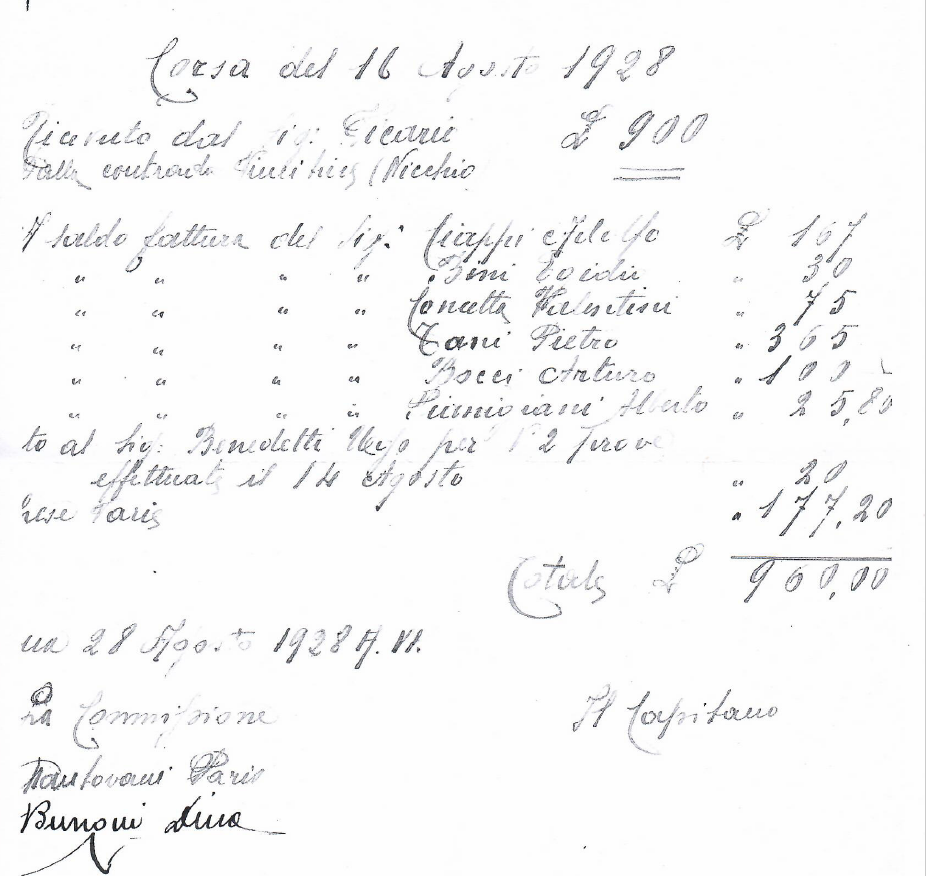 Corsa del 16 Agosto 1928
Ricevuto dal Sig: Vicario £ 900
Dalla contrada (Nicchio
A saldo fattura del Sig: Ciappi Adelfo £ 167
" " " " Bini " 30
" " " " Concetta Valentini " 75
" " " " Tani Pietro " 365
" " " " Bocci Arturo " 100
" " " " Alberto " 25,80
to al Sig: Benedetti per 2 Prove
effettuate il 14 Agosto " 20
Varie " 177,20
Totale £ 960,00
na 28 Agosto 1928 A. VI.
La Commissione Il Capitano
Mantovani Paris
Dina